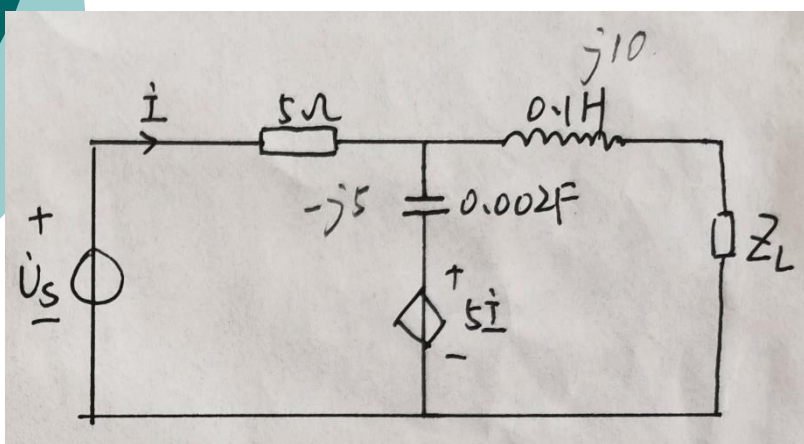 j10
İ
5Ω
0.1H
-j5
0.002F
+
U̇s
-
+
5İ
-
ZL